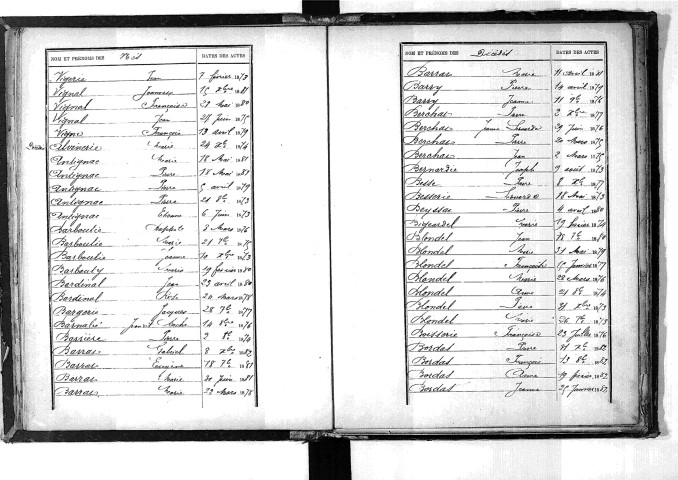 NOM ET PRÉNOMS DES Nés DATES DES ACTES
Vignal Jean 7 février 1878
Vignal 1881
Vignal Françoise 28 mai 1880
Vignal Jean 25 Juin 1875
Vigne François 13 avril 1879
Marie 24 Xbre 1874
Antignac Marie 18 Mai 1881
Antignac Pierre 18 Mai 1881
Antignac Pierre 5 avril 1879
Antignac Pierre 21 8bre 1873
Antignac Etienne 6 Juin 1873
Barboutie Baptiste 8 Mars 1876
Barboutie Marie 21 7bre 1875
Barboutie Jeanne 10 Xbre 1873
Barbouty Marie 19 février 1880
Bardinal Jean 23 avril 1880
Bardinal 20 Mars 1878
Bargerie Jacques 28 7bre 1877
14 8bre 1876
Barrière Pierre 2 8bre 1874
Barras Gabriel 8 Xbre 1882
Barras 18 7bre 1881
Barras Marie 30 Juin 1881
Barras Marie 22 Mars 1878
NOM ET PRÉNOMS DES Décédés DATES DES ACTES
Barras Marie 11 avril 1881
Barry Pierre 14 avril 1879
Barry Jeanne 11 9bre 1876
Berchas Pierre 2 Xbre 1877
Berchas Jeanne 29 Juin 1876
Berchas Pierre 20 Mars 1875
Berchas Jean 2 Mars 1875
Bernardie Joseph 9 août 1873
Besse Pierre 8 Xbre 1877
Besserie 18 Mai 1873
Beyssac Pierre 4 avril 1880
Marie 19 février 1874
Blondel Jean 18 7bre 1880
Blondel Marie 31 Mai 1879
Blondel Françoise 15 Janvier 1877
Blondel Marie 28 Mars 1876
Blondel Anne 21 8bre 1874
Blondel Pierre 31 Xbre 1873
Blondel Marie 26 7bre 1873
Boisserie Françoise 23 Juillet 1876
Bordas Pierre 31 Xbre 1882
Bordas François 13 8bre 1882
Bordas Anne 19 février 1882
Bordas Jeanne 25 Janvier 1882